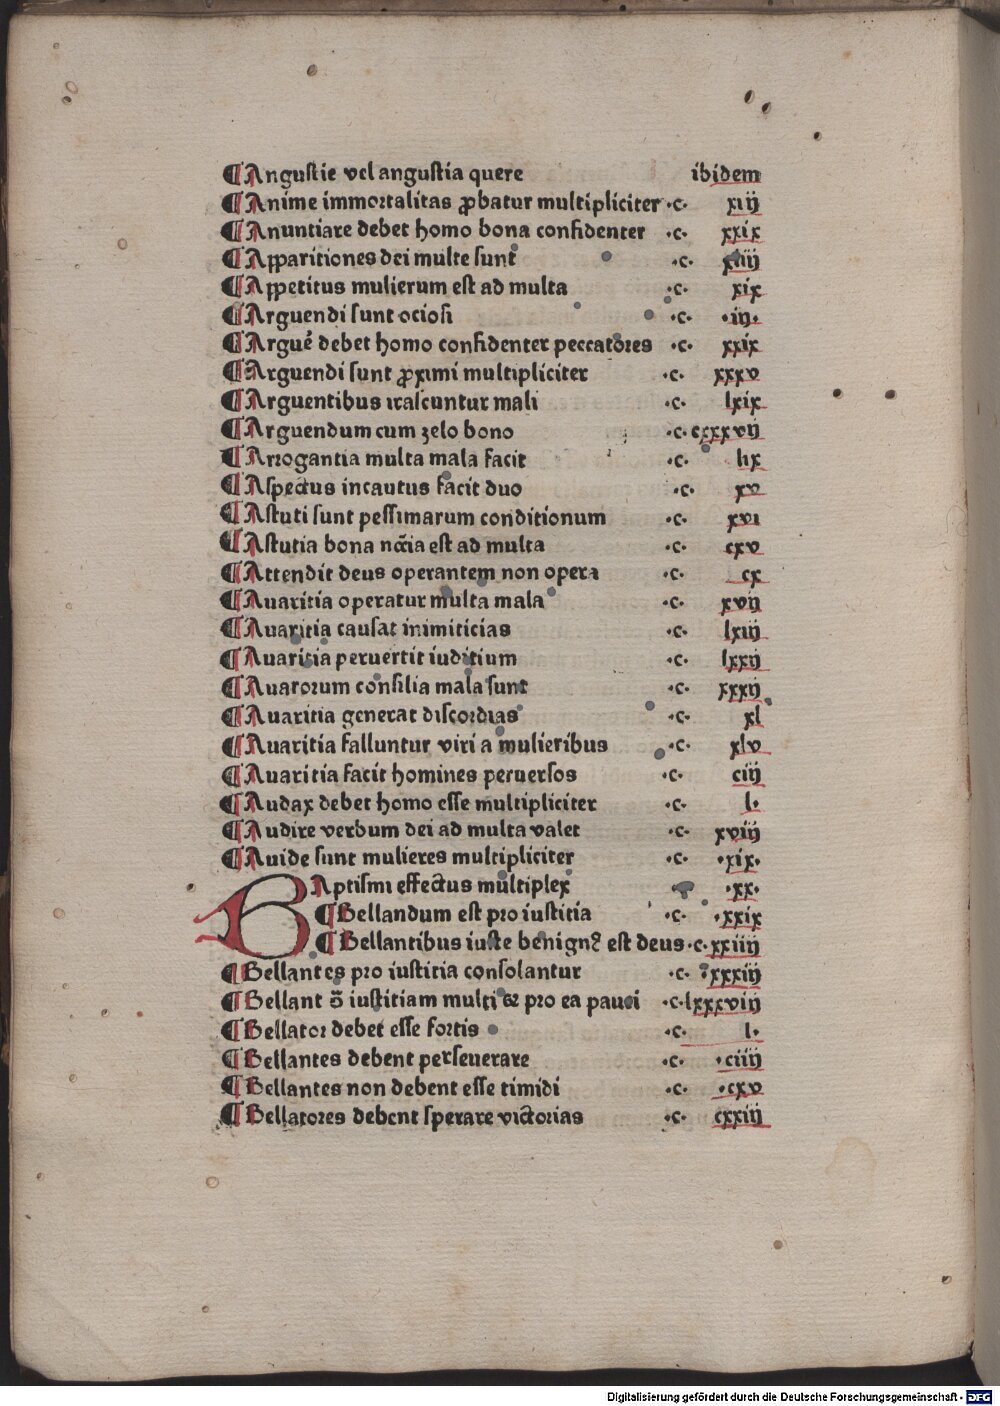 ¶Angustie vel angustia quere ibidem
¶Anime immortalitas ꝓbatur multipliciter ·c· xıij
¶Anuntiare debet homo bona confidenter ·c· xxix
¶Apparitiones dei multe sunt ·c·
¶Appetitus mulierum est ad multa ·c· xix
¶Arguendi sunt ociosi ·c· ·iij·
¶Arguẽ debet homo confidenter peccatores ·c· xxix
¶Arguendi sunt ꝓximi multipliciter ·c· xxxv
¶Arguentibus irascuntur mali ·c· lxix
¶Arguendum cum zelo bono ·c· cxxxvij
¶Arrogantia multa mala facit ·c· lix
¶Aspectus incautus facit duo ·c· xv
¶Astuti sunt pessimarum conditionum ·c· xvi
¶Astutia bona ncc̃ia est ad multa ·c· cxv
¶Attendit deus operantem non opera ·c· cx
¶Avaritia operatur multa mala ·c· xvij
¶Avaritia causat inimiticias ·c· lxiij
¶Avaritia pervertit iuditium ·c· lxxij
¶Avarorum consilia mala sunt ·c· xxxij
¶Avaritia generat discordias ·c· xl
¶Avaritia falluntur viri a mulieribus ·c· xlv
¶Avaritia facit homines perversos ·c· ciij
¶Audax debet homo esse multipliciter ·c· l·
¶Audire verbum dei ad multa valet ·c· xviij
¶Avide sunt mulieres multipliciter ·c· ·xix·
BAptismi effectus multiplex ·xx·
¶Bellandum est pro iustitia ·c· ·xxix
¶Bellantibus iuste benignꝰ est deus ·c· xxiiij
¶Bellantes pro iustitia consolantur ·c· ·xxxiij
¶Bellant ↄ̃ iustitiam multi ⁊ pro ea pauci ·c· lxxxviij
¶Bellator debet esse fortis ·c· l·
¶Bellantes debent perseverare ·c· ·ciiij
¶Bellantes non debent esse timidi ·c· ·cxv
¶Bellatores debent sperare victorias ·c· cxxiij
Digitalisierung gefördert durch die Deutsche Forschungsgemeinschaft - DFG